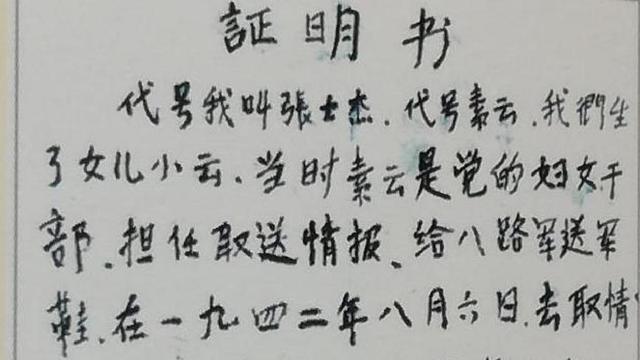 証明书
代号我叫張士杰.代号素云.我們生
了女儿小云.当时素云是党的妇女干
部.担任取送情报、给八路军送军
鞋.在一九四二年八月六日.去取情